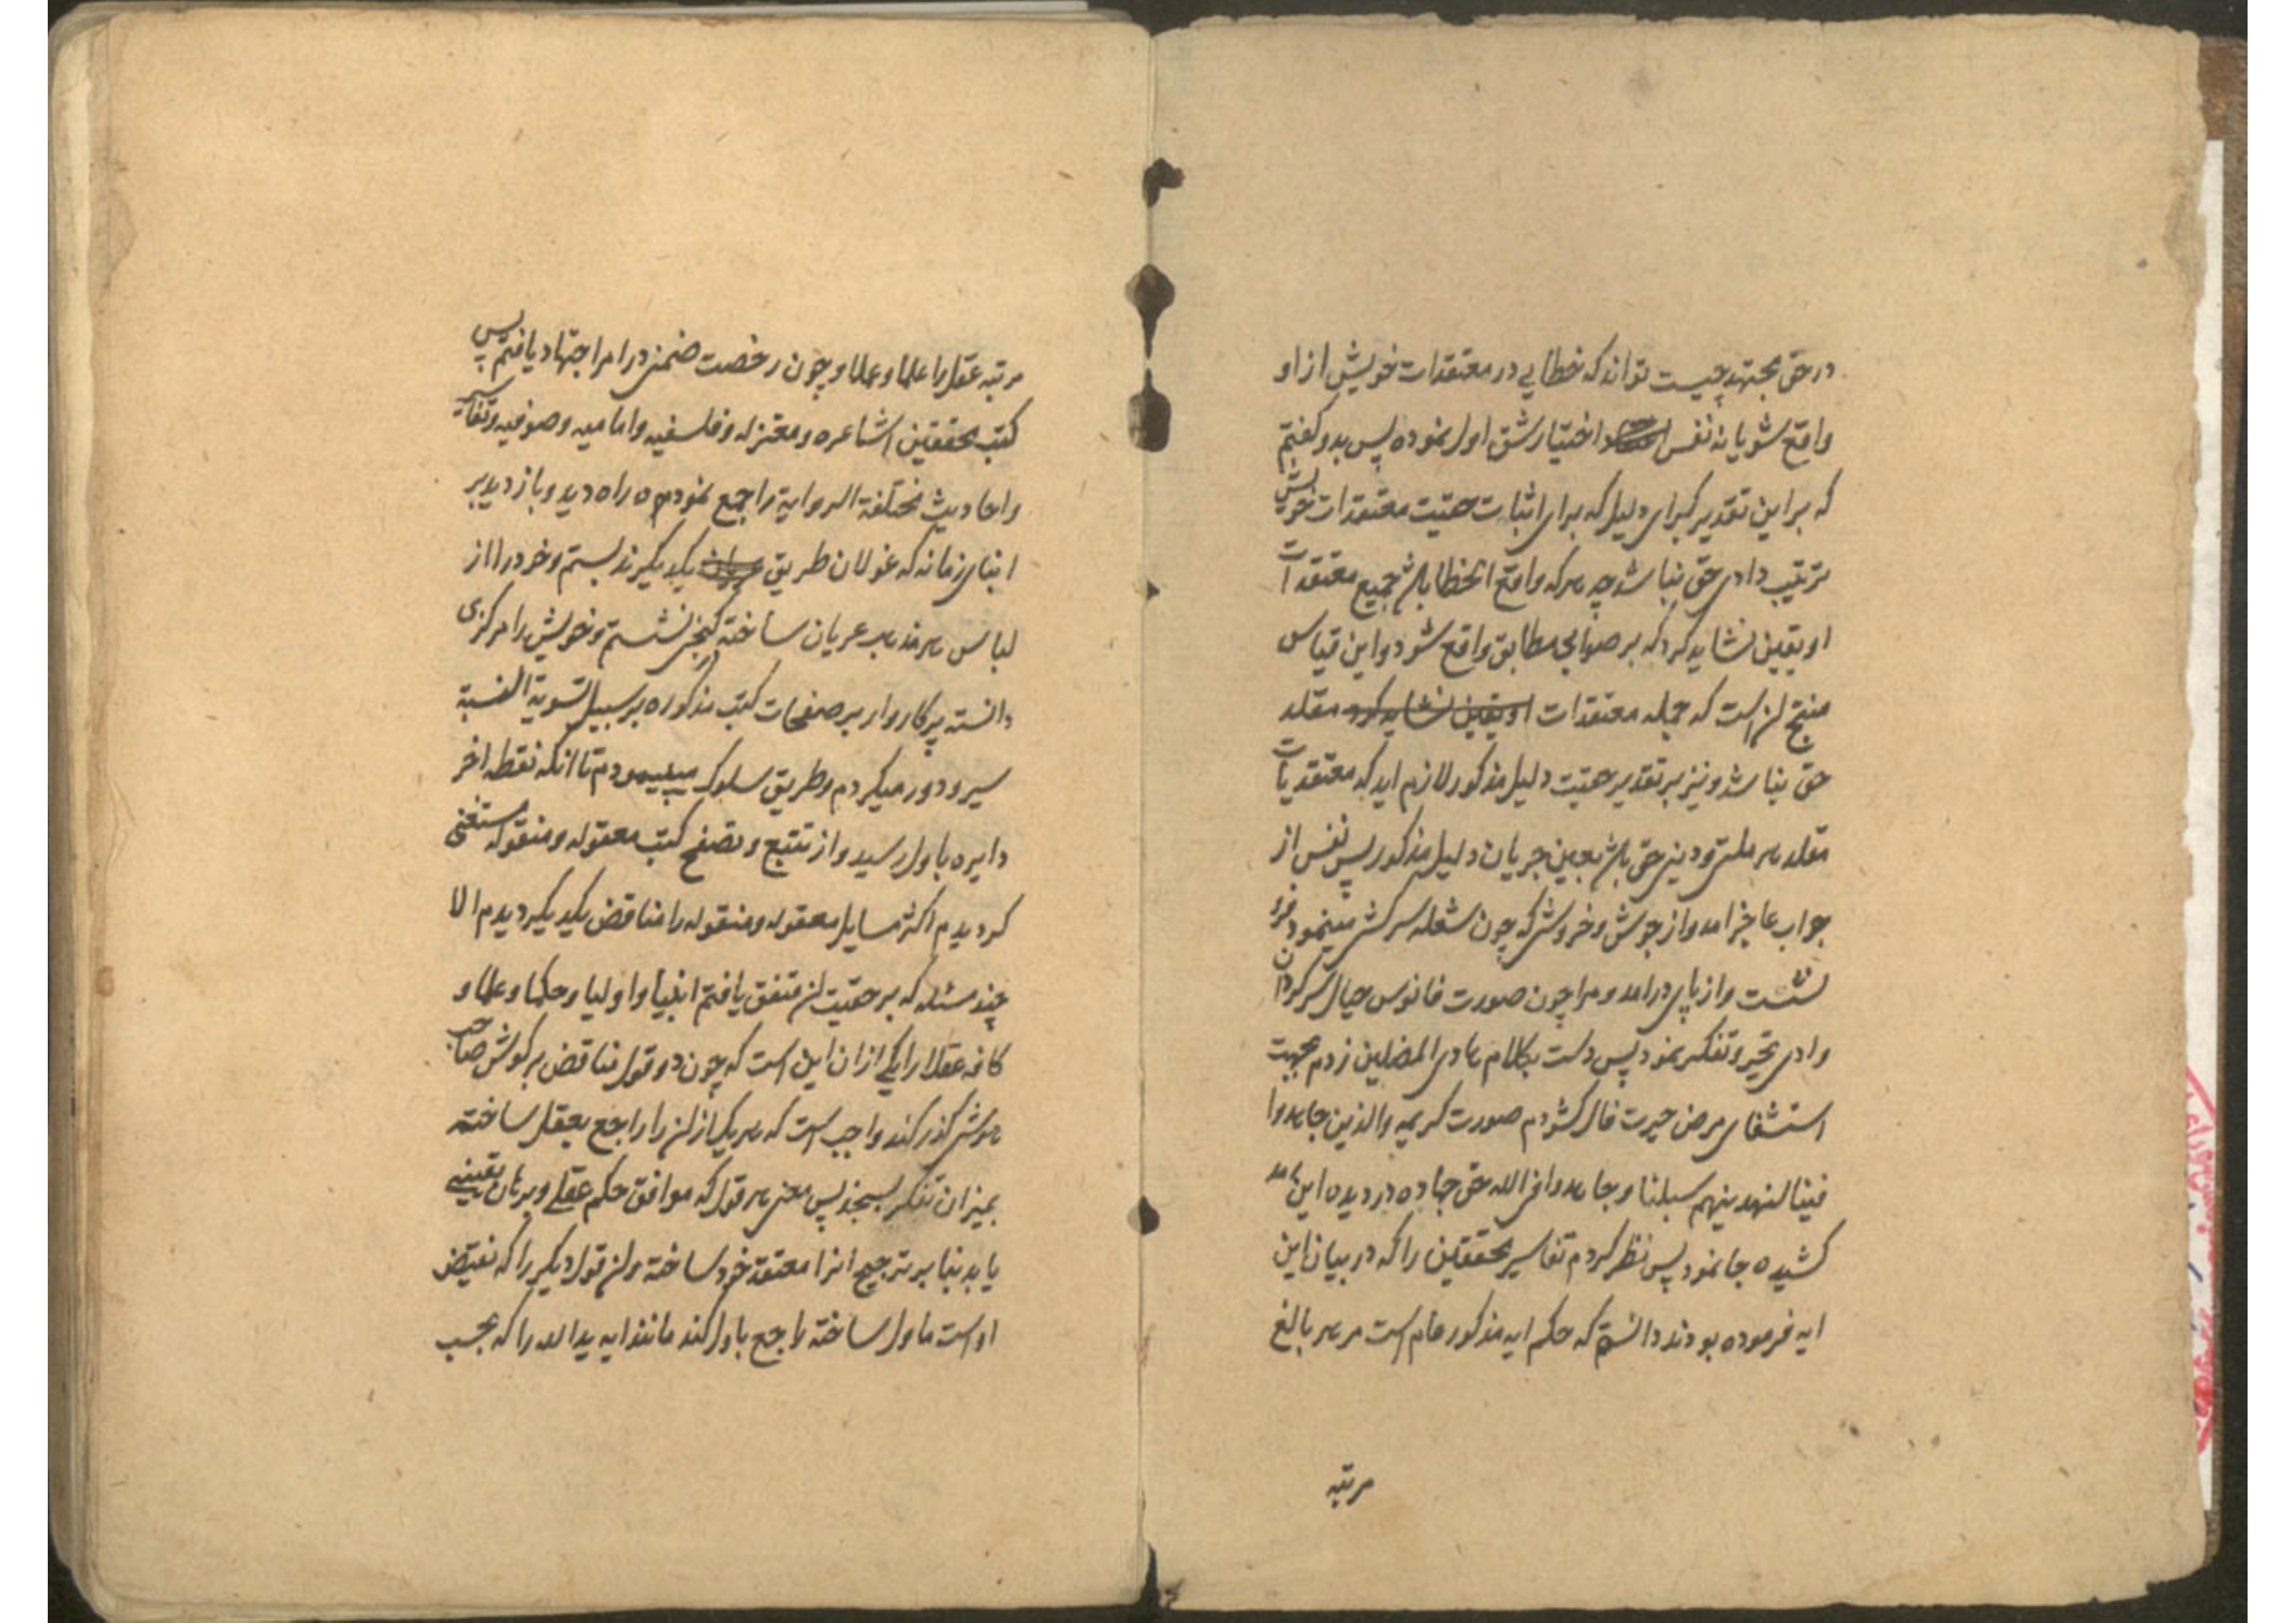 در حق مجتهد چیست تواند که خطایی در معتقدات خویش از او
واقع شود یا نه نفس اختیار شق اول نموده پس بدو گفتم
که براین تقدیر کبرای دلیل که برای اثبات حقیت معتقدات خویش
ترتیب دادی حق نباشد چه هرکه واقع الخطا باشد جمیع معتقدات
او یقین نشاید کرد که بر صوابی مطابق واقع شود و این قیاس
منتج آن است که جمله معتقدات او یقین نشاید کرد مقلد
حق نباشد و نیز بر تقدیر حقیت دلیل مذکور لازم اید که معتقدیات
مقلد هر ملتی و دینی حق باشد بعین جریان دلیل مذکور پس نفس از
جواب عاجز امد و از جوش و خروش که چون شعله سرکش مینمود فرو
نشست و از پای درامد و مرا چون صورت فانوس خیال سرگردان
وادی تحیر و تفکر نمود پس دست بکلام هادی المضلین زدم بجهت
استشفای مرض حیرت فال کشودم صورت کریمه والذین جاهدوا
فینا لنهدینهم سبلنا و جاهدوا فی الله حق جهاده در دیده این
کشیده جا نمود پس نظر کردم تفاسیر محققین را که در بیان این
ایه فرموده بودند دانستم که حکم ایه مذکور عام است مر هر بالغ
مرتبه
مرتبه عقل را علما و عملا و چون رخصت ضمنی در امر اجتهاد یافتم پس
کتب محققین اشاعره و معتزله و فلسفیه و امامیه و صوفیه و تفاسیر
و احادیث مختلفة الروایة را جمع نمودم و راه دید و بازدید بر
ابنای زمانه که غولان طریق یکدیگرند بستم و خود را از
لباس هر مذهب عریان ساخته در کنجی نشستم و خویش را مرکزی
دانسته پرکار وار بر صفحات کتب مذکوره بر سبیل تسویة النسبة
سیر و دور میکردم و طریق سلوک میپیمودم تا انکه نقطه اخر
دایره باول رسید و از تتبع و تصفح کتب معقوله و منقوله مستغنی
کردیدم اکثر مسایل معقوله و منقوله را مناقض یکدیگر دیدم الا
چند مسئله که بر حقیت آن متفق یافتم انبیا و اولیا و حکما و علما و
کافه عقلا را یکی ازان این است که چون دو قول مناقض بر کوش صاحب
هوش گذر کند واجب است که هر یک از آن را راجع بعقل ساخته
بمیزان تفکر بسنجد پس معنی هر قول که موافق حکم عقلی و برهان یقینی
یابد بنا بر ترجیح انرا معتقد خود ساخته و آن قول دیگر را که نقیض
او است ماول ساخته راجع باول کند مانند ایه ید الله را که بحسب